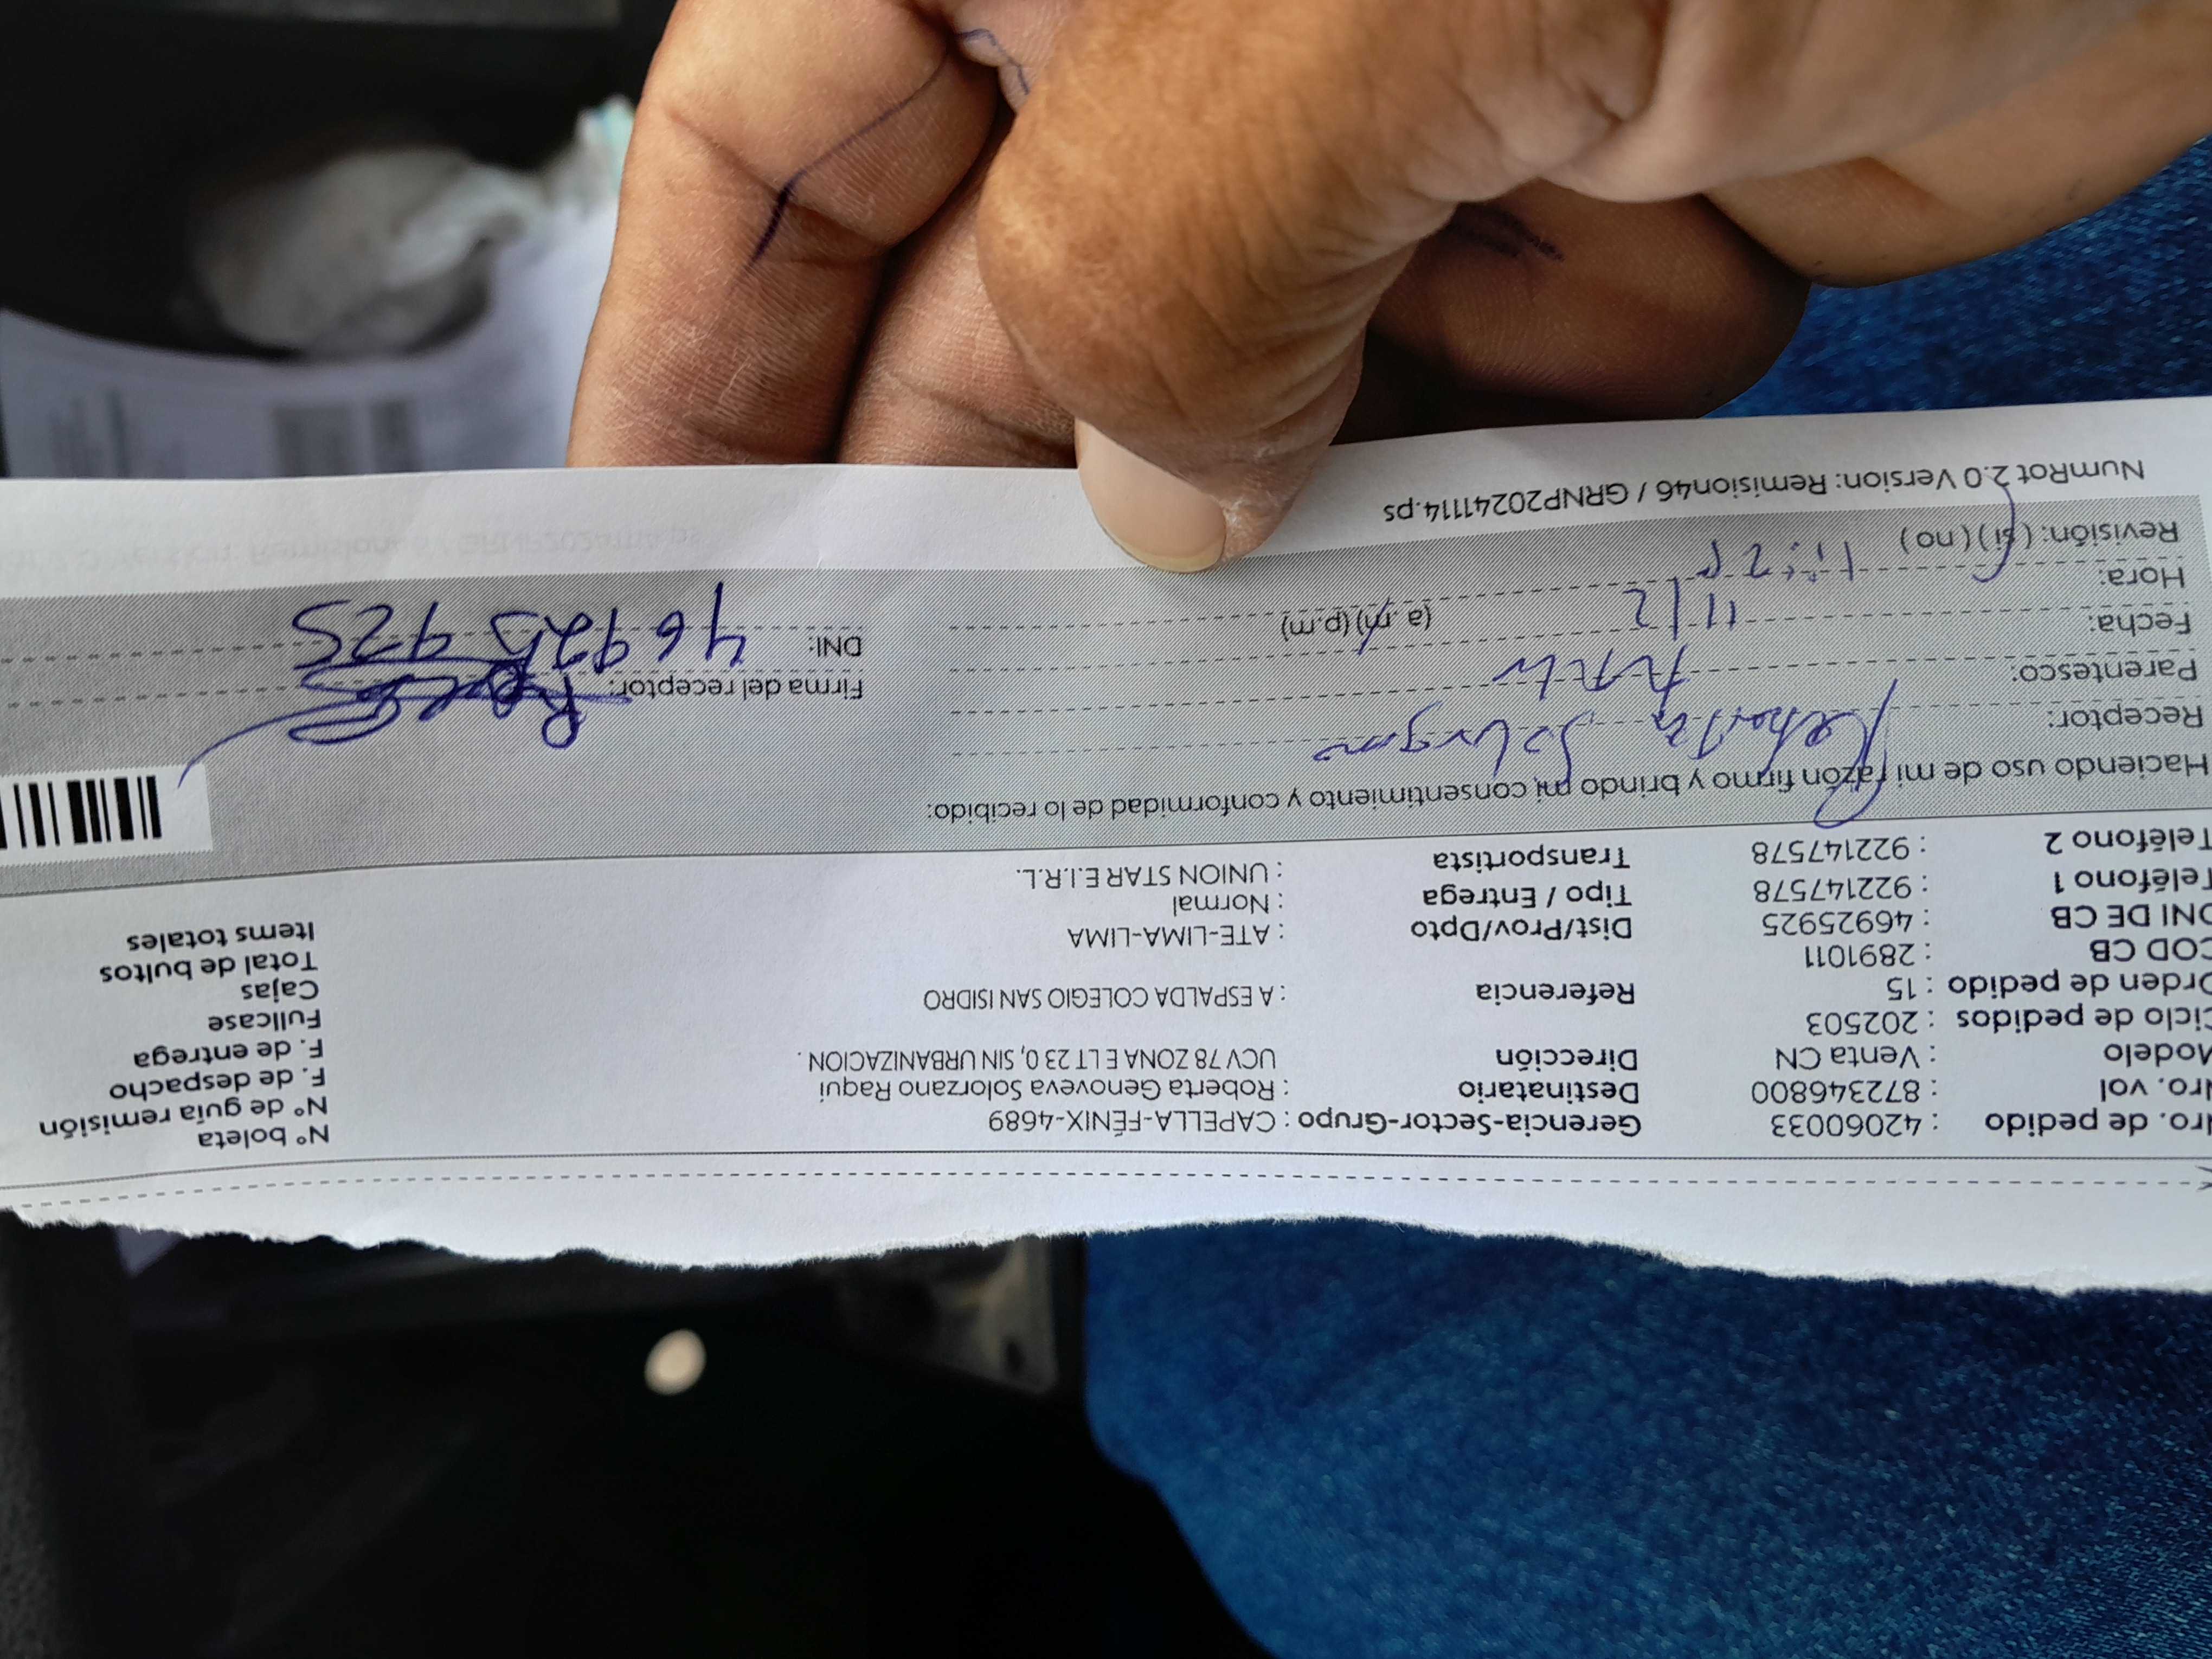 Nro. de pedido : 42060033 Gerencia-Sector-Grupo : CAPELLA-FÉNIX-4689 N° boleta
Nro. vol : 872346800 Destinatario : Roberta Genoveva Solorzano Raqui N° de guía remisión
Modelo : Venta CN Dirección UCV 78 ZONA E LT 23 0, SIN URBANIZACION . F. de despacho
Ciclo de pedidos : 202503 F. de entrega
Orden de pedido : 15 Referencia : A ESPALDA COLEGIO SAN ISIDRO Fullcase
COD CB : 2891011 Cajas
DNI DE CB : 46925925 Dist/Prov/Dpto : ATE-LIMA-LIMA Total de bultos
Teléfono 1 : 922147578 Tipo / Entrega : Normal Items totales
Teléfono 2 : 922147578 Transportista : UNION STAR E.I.R.L.
Haciendo uso de mi razón firmo y brindo mi consentimiento y conformidad de lo recibido:
Receptor: Roberta
Parentesco: Firma del receptor:
Fecha: 11/2 (a.m) (p.m) DNI: 46925925
Hora:
Revisión: (si) (no)
NumRot 2.0 Version: Remision46 / GRNP20241114.ps